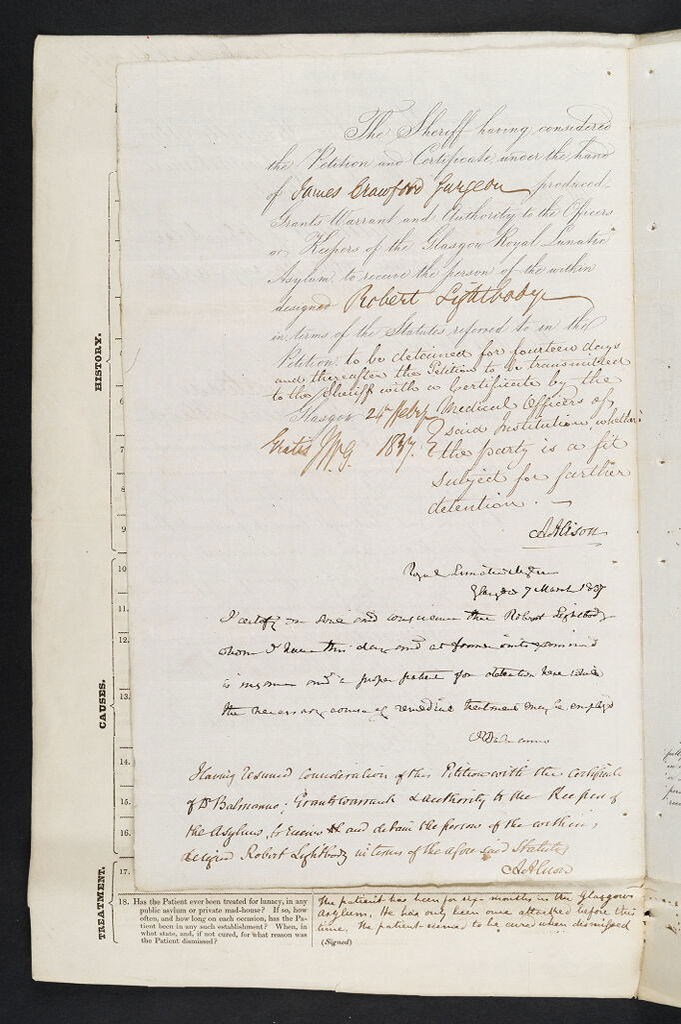 The Sheriff having considered
the Petition and Certificate under the hand
of James Crawford Surgeon produced
Grants Warrant and Authority to the Officers
or Keepers of the Glasgow Royal Lunatic
Asylum to receive the person of the within
designed Robert Lightbody
in terms of the Statutes referred to in the
Petition to be detained for fourteen days
and thereafter the Petition to be transmitted
to the Sheriff with a Certificate by the
Glasgow 24 Feby Medical Officers of
Gratis 1837. said Institution, whether
the party is a fit
subject for further
detention. —
A Alison
Royal Lunatic Asylum
Glasgow 7 March 1837
I certify on soul and conscience that Robert Lightbody
whom I have this day and at former visits examined
is insane and a proper patient for detention here while
the necessary course of remedial treatment may be employed
Having resumed Consideration of this Petition with the Certificate
of Dr Balmanno: Grants warrant & authority to the Keeper of
the Asylum, to receive and detain the person of the within
designed Robert Lightbody in terms of the aforesaid Statutes
A Alison
HISTORY.
CAUSES.
TREATMENT.
6
7
8
9
10
11.
12.
13.
14.
15.
16.
17.
18. Has the Patient ever been treated for lunacy, in any
public asylum or private mad-house? If so, how
often, and how long on each occasion, has the Pa-
tient been in any such establishment? When, in
what state, and, if not cured, for what reason was
the Patient dismissed?
The patient has been for six months in the Glasgow
Asylum. He has only been once attacked before this
time. The patient seemed to be cured when dismissed
(Signed)